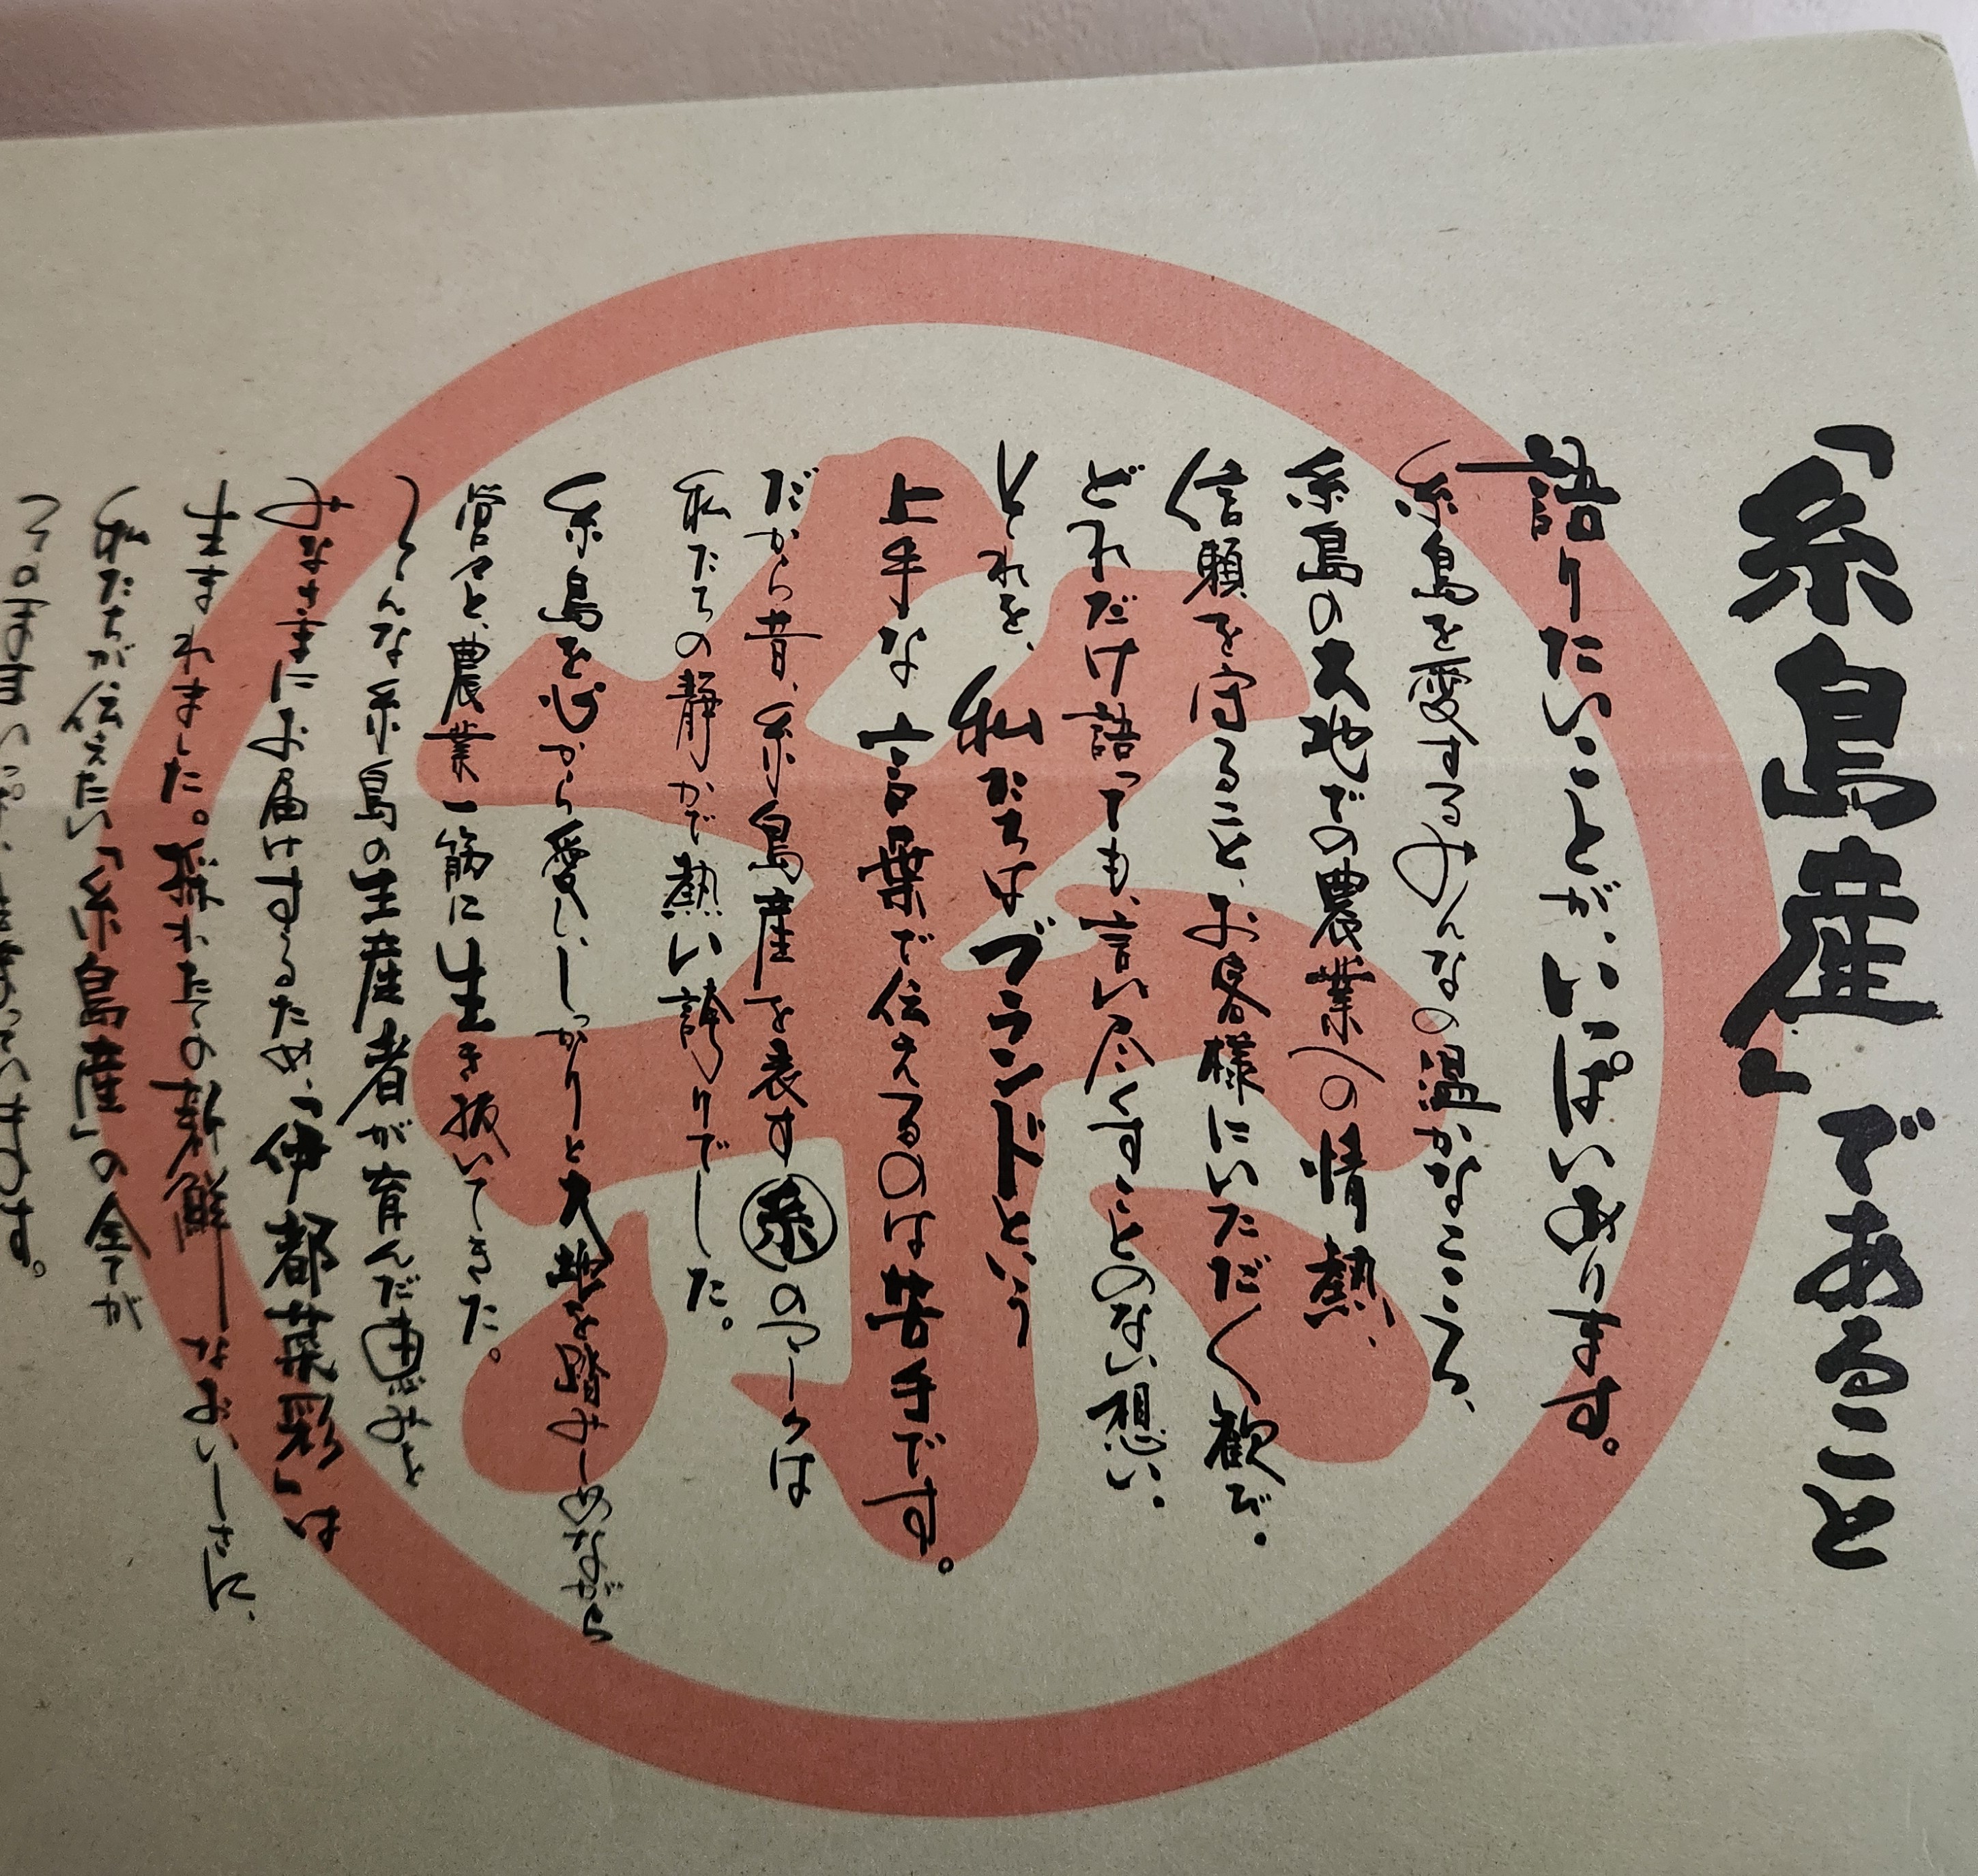 「糸島産」であること
語りたいことが、いっぱいあります。
糸島を愛するみんなの温かなこころ、
糸島の大地での農業への情熱、
信頼を守ること、お客様にいただく歓び。
どれだけ語っても、言い尽くすことのない想い。
それを、私たちはブランドという
上手な言葉で伝えるのは苦手です。
だから昔、糸島産を表す㊎のマークは
私たちの静かで熱い誇りでした。
糸島を心から愛し、しっかりと大地を踏みしめながら
営々と、農業一筋に生き抜いてきた。
そんな糸島の生産者が育んだ恵みを
みなさまにお届けするため、「伊都菜彩」は
生まれました。採れたての新鮮なおいしさに、
私たちが伝えたい「糸島産」の全てが
そのままいっぱい